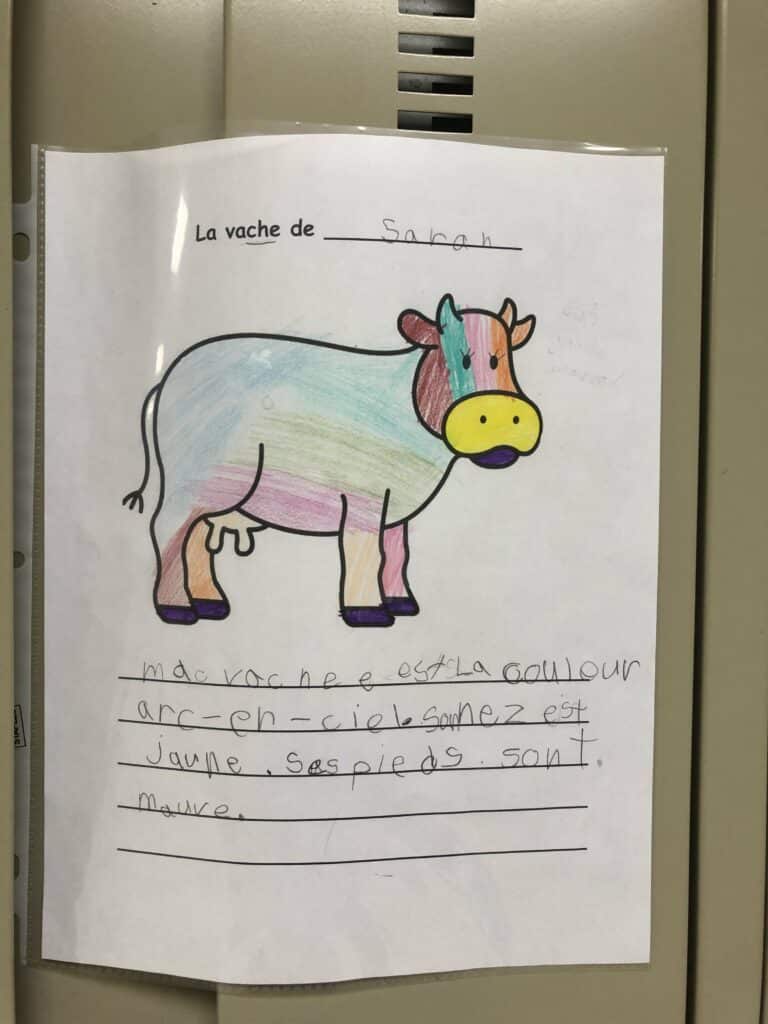 La vache de Sarah
mac vachee est La couleur
arc-en-ciel. Son nez est
jaune. Ses pieds. sont.
mauve.